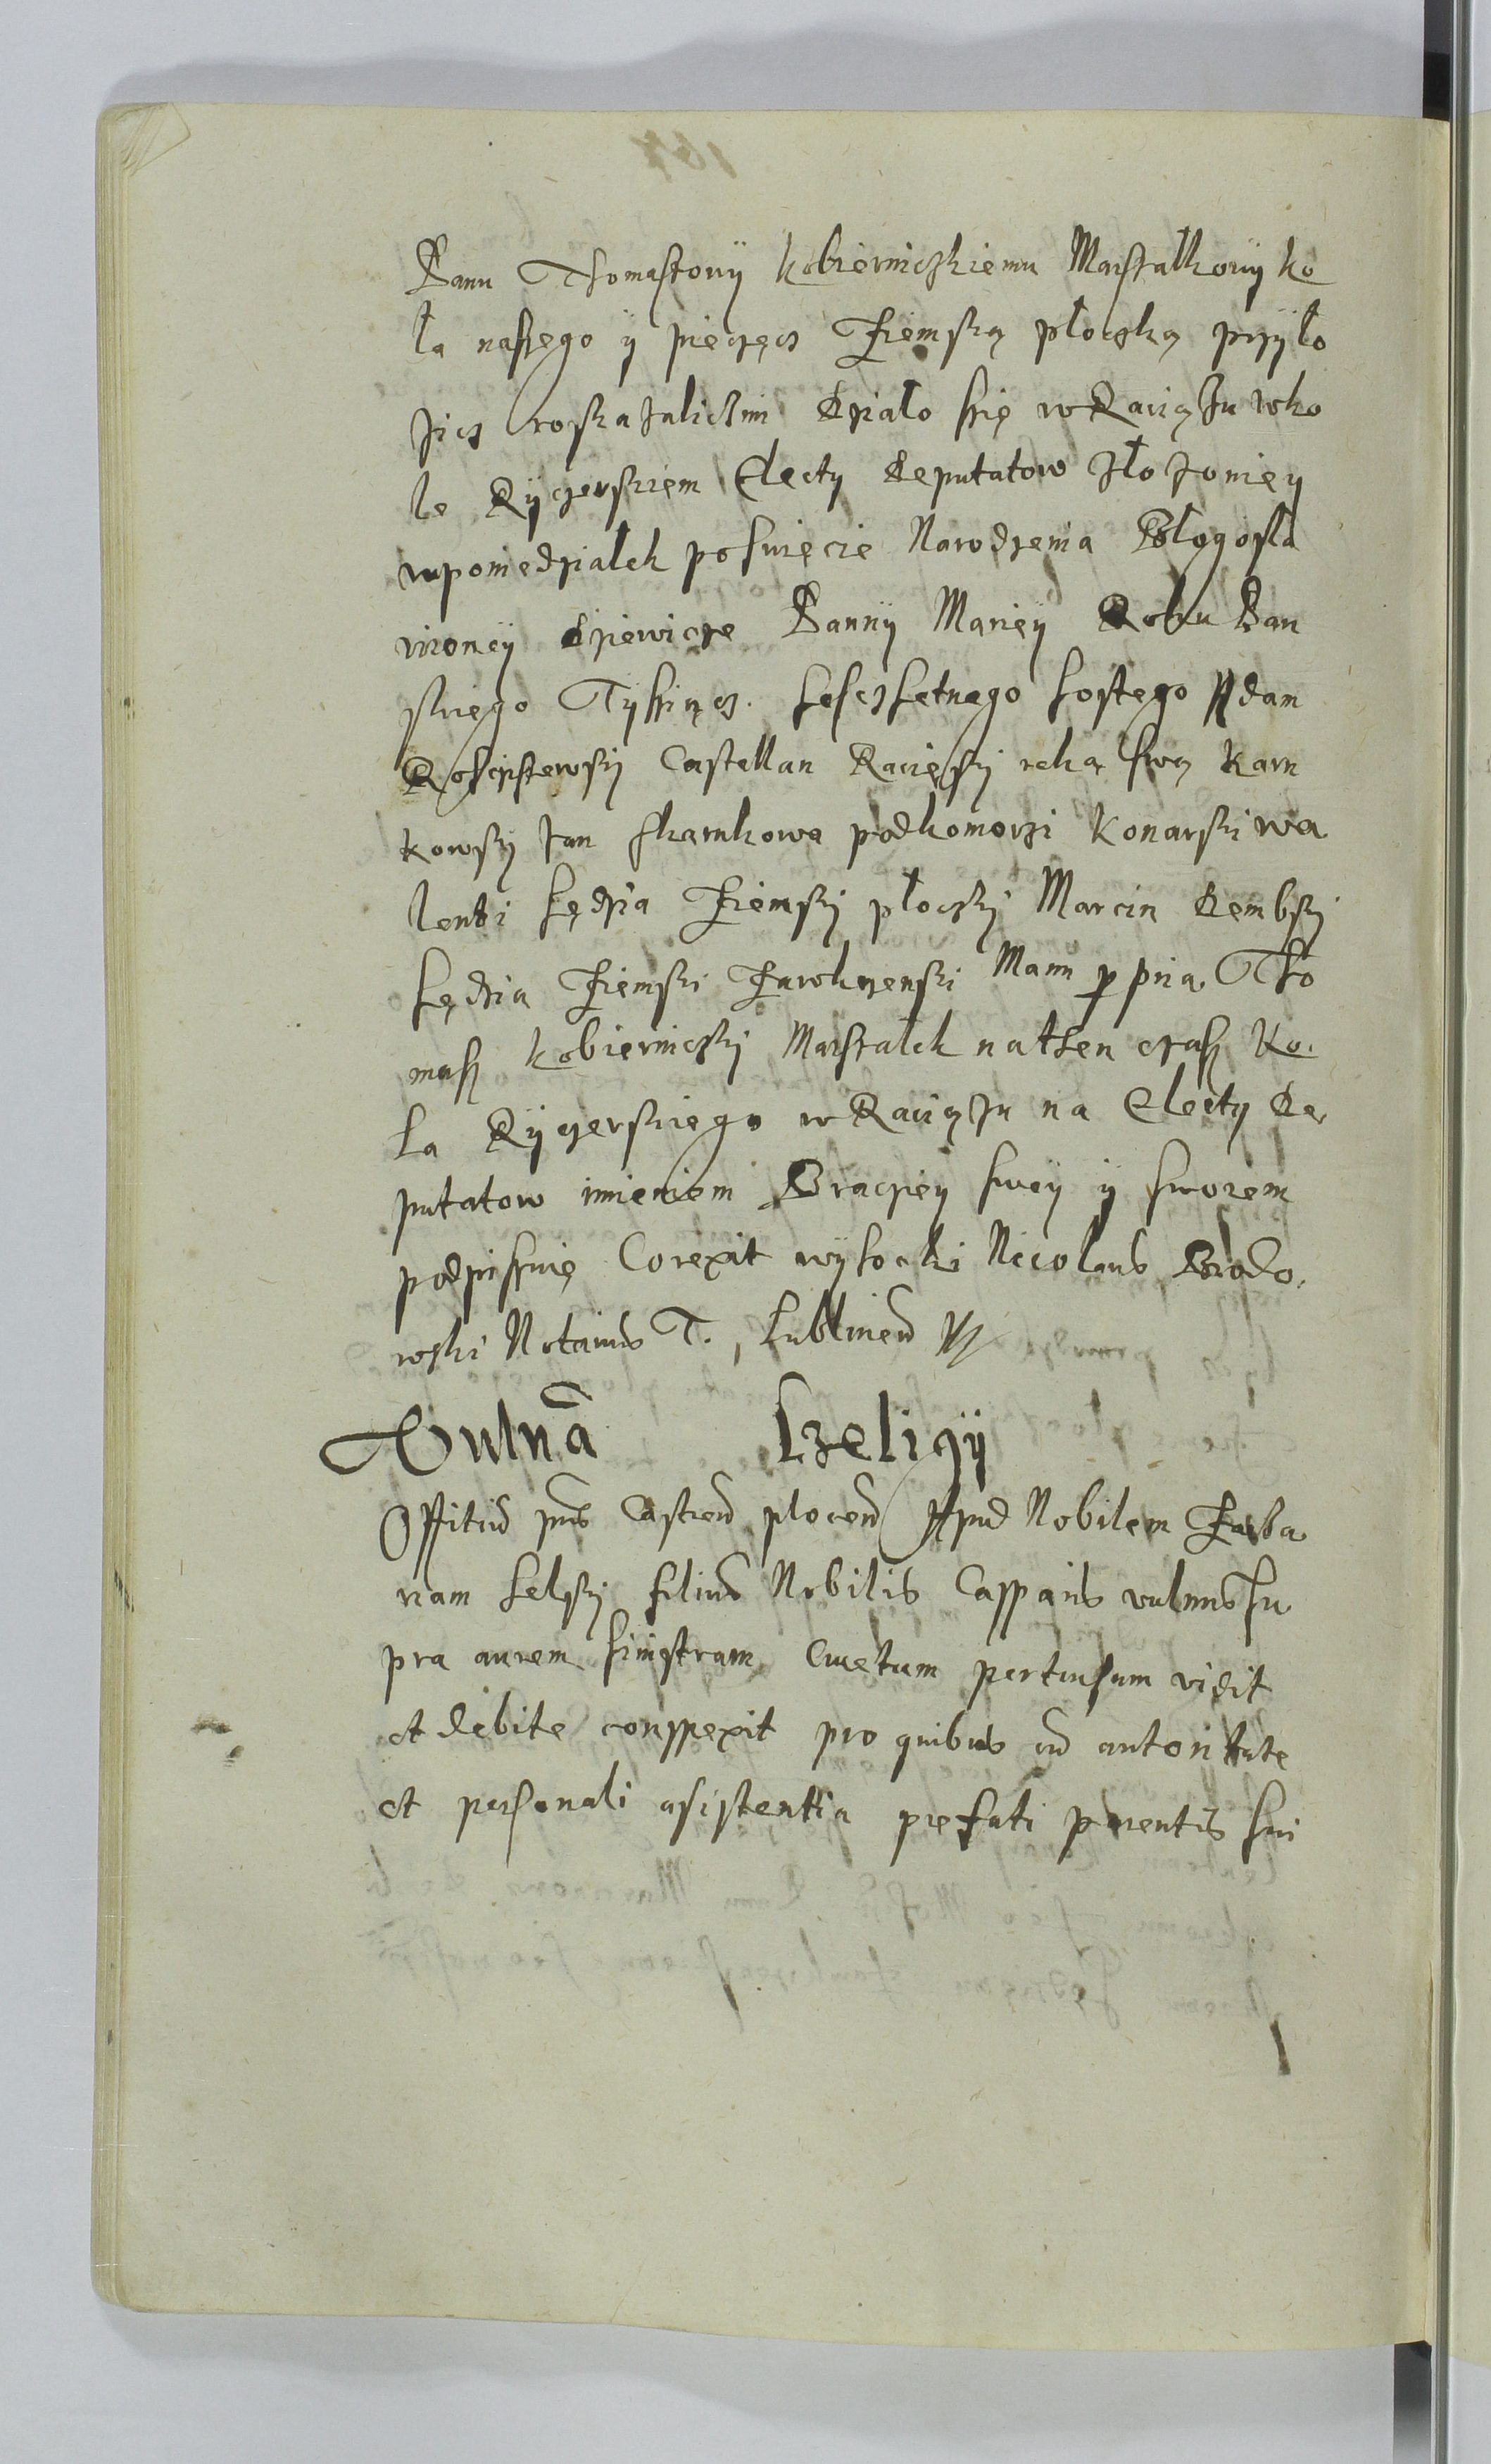 Panu Thomaszowy Kobierniczkiemu Marszalkowy ko
la naszego y pieczęcz Ziemską ploczką przylo
zicz roskazalichmi Dzialo szię w Raciązu w ko
le Rÿczerskiem Electy Deputatow zlozoney
w poniedzialek po swięcie Narodzenia Blogosla
wioneÿ Dziewicze Panny Marieÿ Roku Pan
skiego Tÿsiącz Szesczsetnego szostego Adam
Rosciszewsky Castellan Raciesky reką swą Karn
kowsky Jan s Karnkowa podkomorzi Konarski Wa
lenti Sędzia Ziemsky ploczky Marcin Dembsky
Sędzia Ziemski Zawkrzenski Manu ppria Tho
masz Kobierniczky Marszalek na then czasz Ko
la Rÿczerskiego w Raciązu na Electy De
putatow imieniem Braciey swey ÿ swoiem
podpisuię Corexit wysocki Nicolaus Brodo
wski Notarius T. Lublinen
Vulnera Szeligÿ
Offitium pns Castren plocen Apud Nobilem Barba
ram Selsky filiam Nobilis Casparis vulnus su
pra aurem sinistram Cruetum pertusum vidit
et debite conspexit pro quibus cum autoritate
et personali asistentia prefati parentis sui